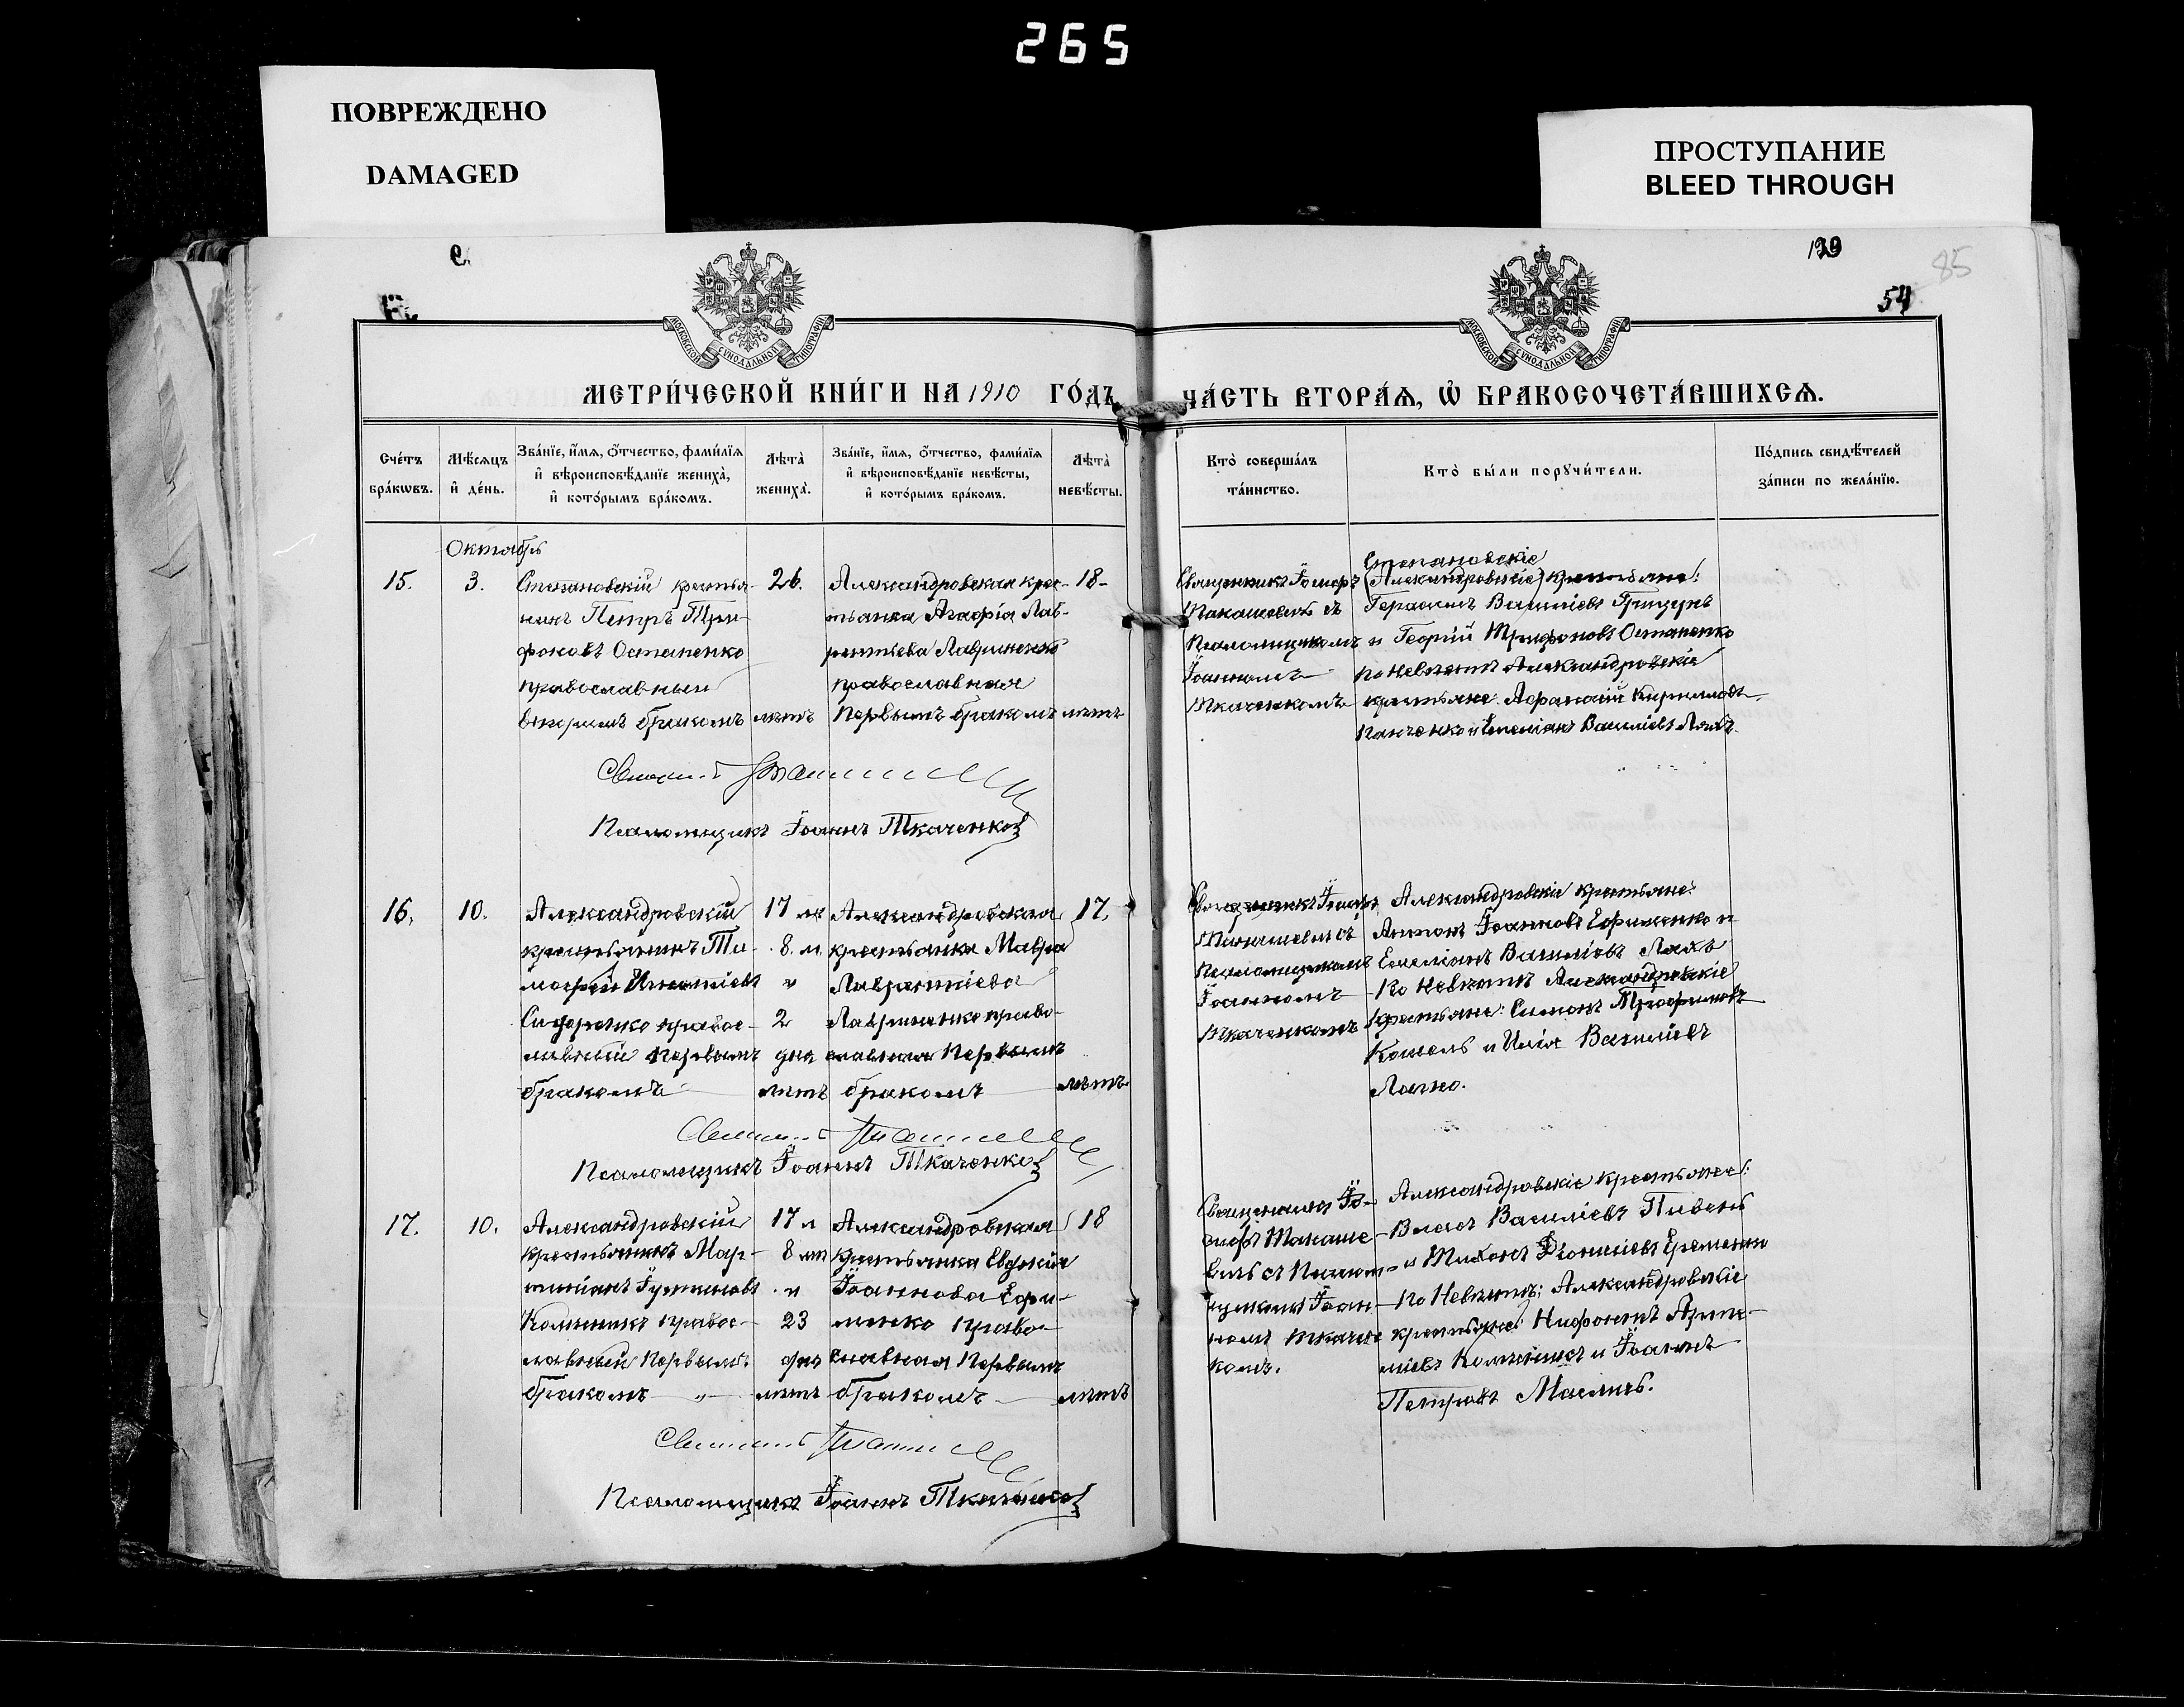 265
ПОВРЕЖДЕНО
DAMAGED
ПРОСТУПАНИЕ
BLEED THROUGH
139
85
54
МОСКОВСКОЙ СѴНОДАЛЬНОЙ ТИПОГРАФІИ
МОСКОВСКОЙ СѴНОДАЛЬНОЙ ТИПОГРАФІИ
МЕТРИ́ЧЕСКОЙ КНИ́ГИ НА 1910 ГО́ДЪ
ЧА́СТЬ ВТОРА́Ѧ, Ѡ҆ БРАКОСОЧЕТА́ВШИХСѦ.
Сче́тъ
бра́кѡвъ.
Мѣ́сѧцъ
и҆ де́нь.
Зва́нїе, и҆́мѧ, ѻ҆́тчество, фами́лїѧ
и҆ вѣроисповѣ́данїе жениха̀,
и҆ кото́рымъ бра́комъ.
Лѣ́та̀
жениха̀.
Зва́нїе, и҆́мѧ, ѻ҆́тчество, фами́лїѧ
и҆ вѣроисповѣ́данїе невѣ́сты,
и҆ кото́рымъ бра́комъ.
Лѣ́та̀
невѣ́сты.
Кто̀ соверша́лъ
та́инство.
Кто̀ бы́ли порꙋчи́тели.
По́дпись свидѣ́телей
за́писи по жела́нїю.
Октябрь
15.
3.
Степановскій крестья-
нинъ Петръ Три-
фоновъ Остапенко
православный
вторымъ бракомъ
26.
лѣтъ
Александровская крес-
тьянка Агафія Лав-
рентіева Лавриненко
православная
первымъ бракомъ
18-
лѣтъ
Священникъ Іосифъ
Макашевичъ съ
Псаломщикомъ
Іоанномъ
Ткаченкомъ
Степановскіе
(Александровскіе) крестьяне:
Герасимъ Василіевъ Грицунъ
и Георгій Трифоновъ Остапенко
по невѣстѣ Александровскіе
крестьяне: Афанасій Кирилловъ
Панченко и Емеліанъ Василіевъ Ляхъ.
Псаломщикъ Іоаннъ Ткаченко
16.
10.
Александровскій
крестьянинъ Ти-
мофей Игнатіевъ
Сидоренко правос-
лавный первымъ
бракомъ
17 лѣ
8. м.
и
2
дня
лѣтъ
Александровская
крестьянка Мавра
Лаврентіева
Лавриненко право-
славная первымъ
бракомъ
17.
лѣтъ
Священникъ Іосифъ
Макашевичъ съ
Псаломщикомъ
Іоанномъ
Ткаченкомъ
Александровскіе крестьяне:
Антонъ Іоанновъ Ефименко и
Емеліанъ Василіевъ Ляхъ
по невѣстѣ Александровскіе
крестьяне: Симонъ Трофимовъ
Кошель и Илія Василіевъ
Псаломщикъ Іоаннъ Ткаченко
17.
10.
Александровскій
крестьянинъ Мар-
тиніанъ Іустиновъ
правос-
лавный первымъ
бракомъ „
17 л
8 мѣ
и
23
дня
лѣтъ
Александровская
крестьянка Евдокія
Іоаннова Ефи-
менко право-
славная первымъ
бракомъ
18
лѣтъ
Священникъ Іо-
сифъ Макаше-
вичъ съ Псалом-
щикомъ Іоан-
номъ Ткачен-
комъ.
Александровскіе крестьяне:
Власъ Василіевъ Пивень
и Тихонъ Діонисіевъ Еременко
по невѣстѣ: Александровскіе
крестьяне: Нифонтъ Арте-
міевъ и Іоаннъ
Петровъ Масличъ.
Псаломщикъ Іоаннъ Ткаченко